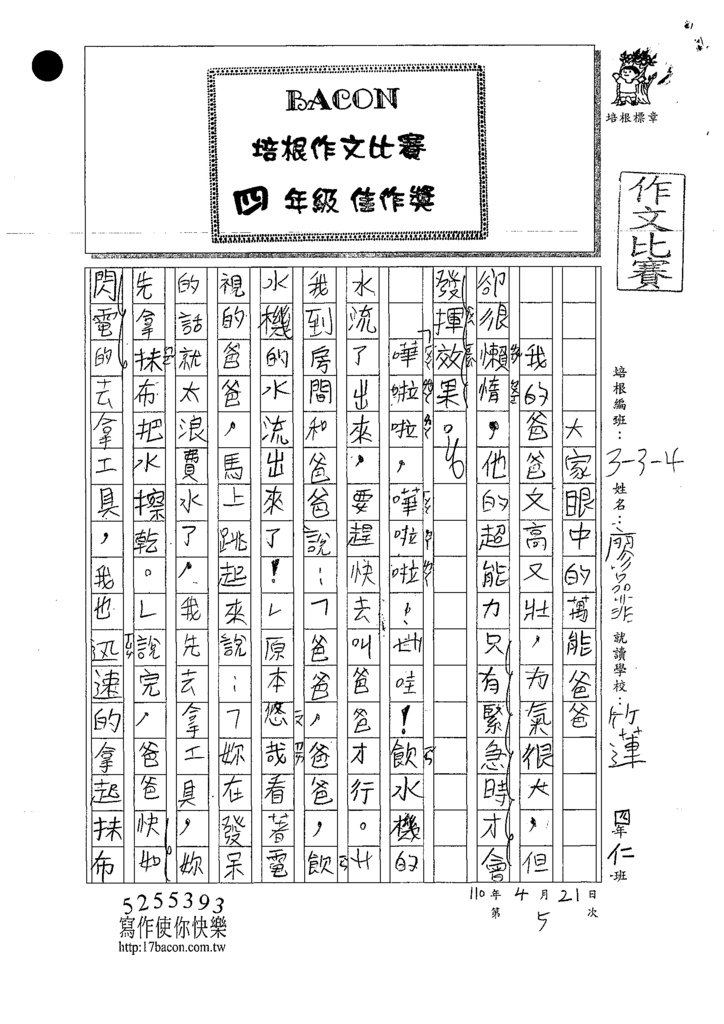 BACON
培根作文比賽
四年級佳作獎
培根標章
作文比賽
培根編班：3-3-4
姓名：廖
就讀學校：竹蓮
四年仁班
大家眼中的萬能爸爸
我的爸爸又高又壯，力氣很大，但
卻很懶惰，他的超能力只有緊急時才會
發揮效果。
「嘩啦啦，嘩啦啦！」哇！飲水機的
水流了出來，要趕快去叫爸爸才行。」
我到房間和爸爸說：「爸爸，爸爸，飲
水機的水流出來了！」原本悠哉看著電
視的爸爸，馬上跳起來說：「妳在發呆
的話就太浪費水了，我先去拿工具，妳
先拿抹布把水擦乾。」說完，爸爸快如
閃電的去拿工具，我也迅速的拿起抹布
110年4月21日
第5次
5255393
寫作使你快樂
http:17bacon.com.tw